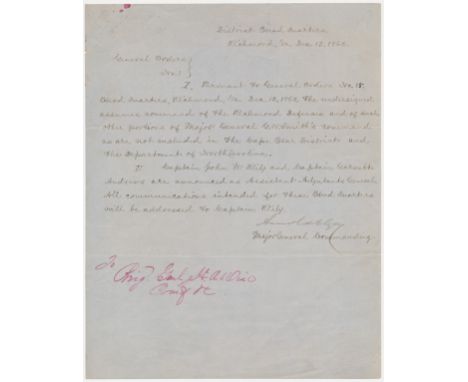 District Head Quarters
Richmond, Va Dec 12, 1862
General Orders
No. 1
I. Pursuant to General Orders No. 15
Head Quarters, Richmond, Va Dec 12, 1862 The undersigned
assumes command of the Richmond Defenses and of such
other portions of Major General G.W. Smith's command
as are not included in the Cape Fear District and
the Department of North Carolina.
II Captain John W. and Captain Garnett
Andrews are announced as Assistant Adjutants General
All communications intended for these Head Quarters
will be addressed to Captain
Arnold Elzey
Major General Commanding.
To
Brig. Genl H A Wise
Comg &c